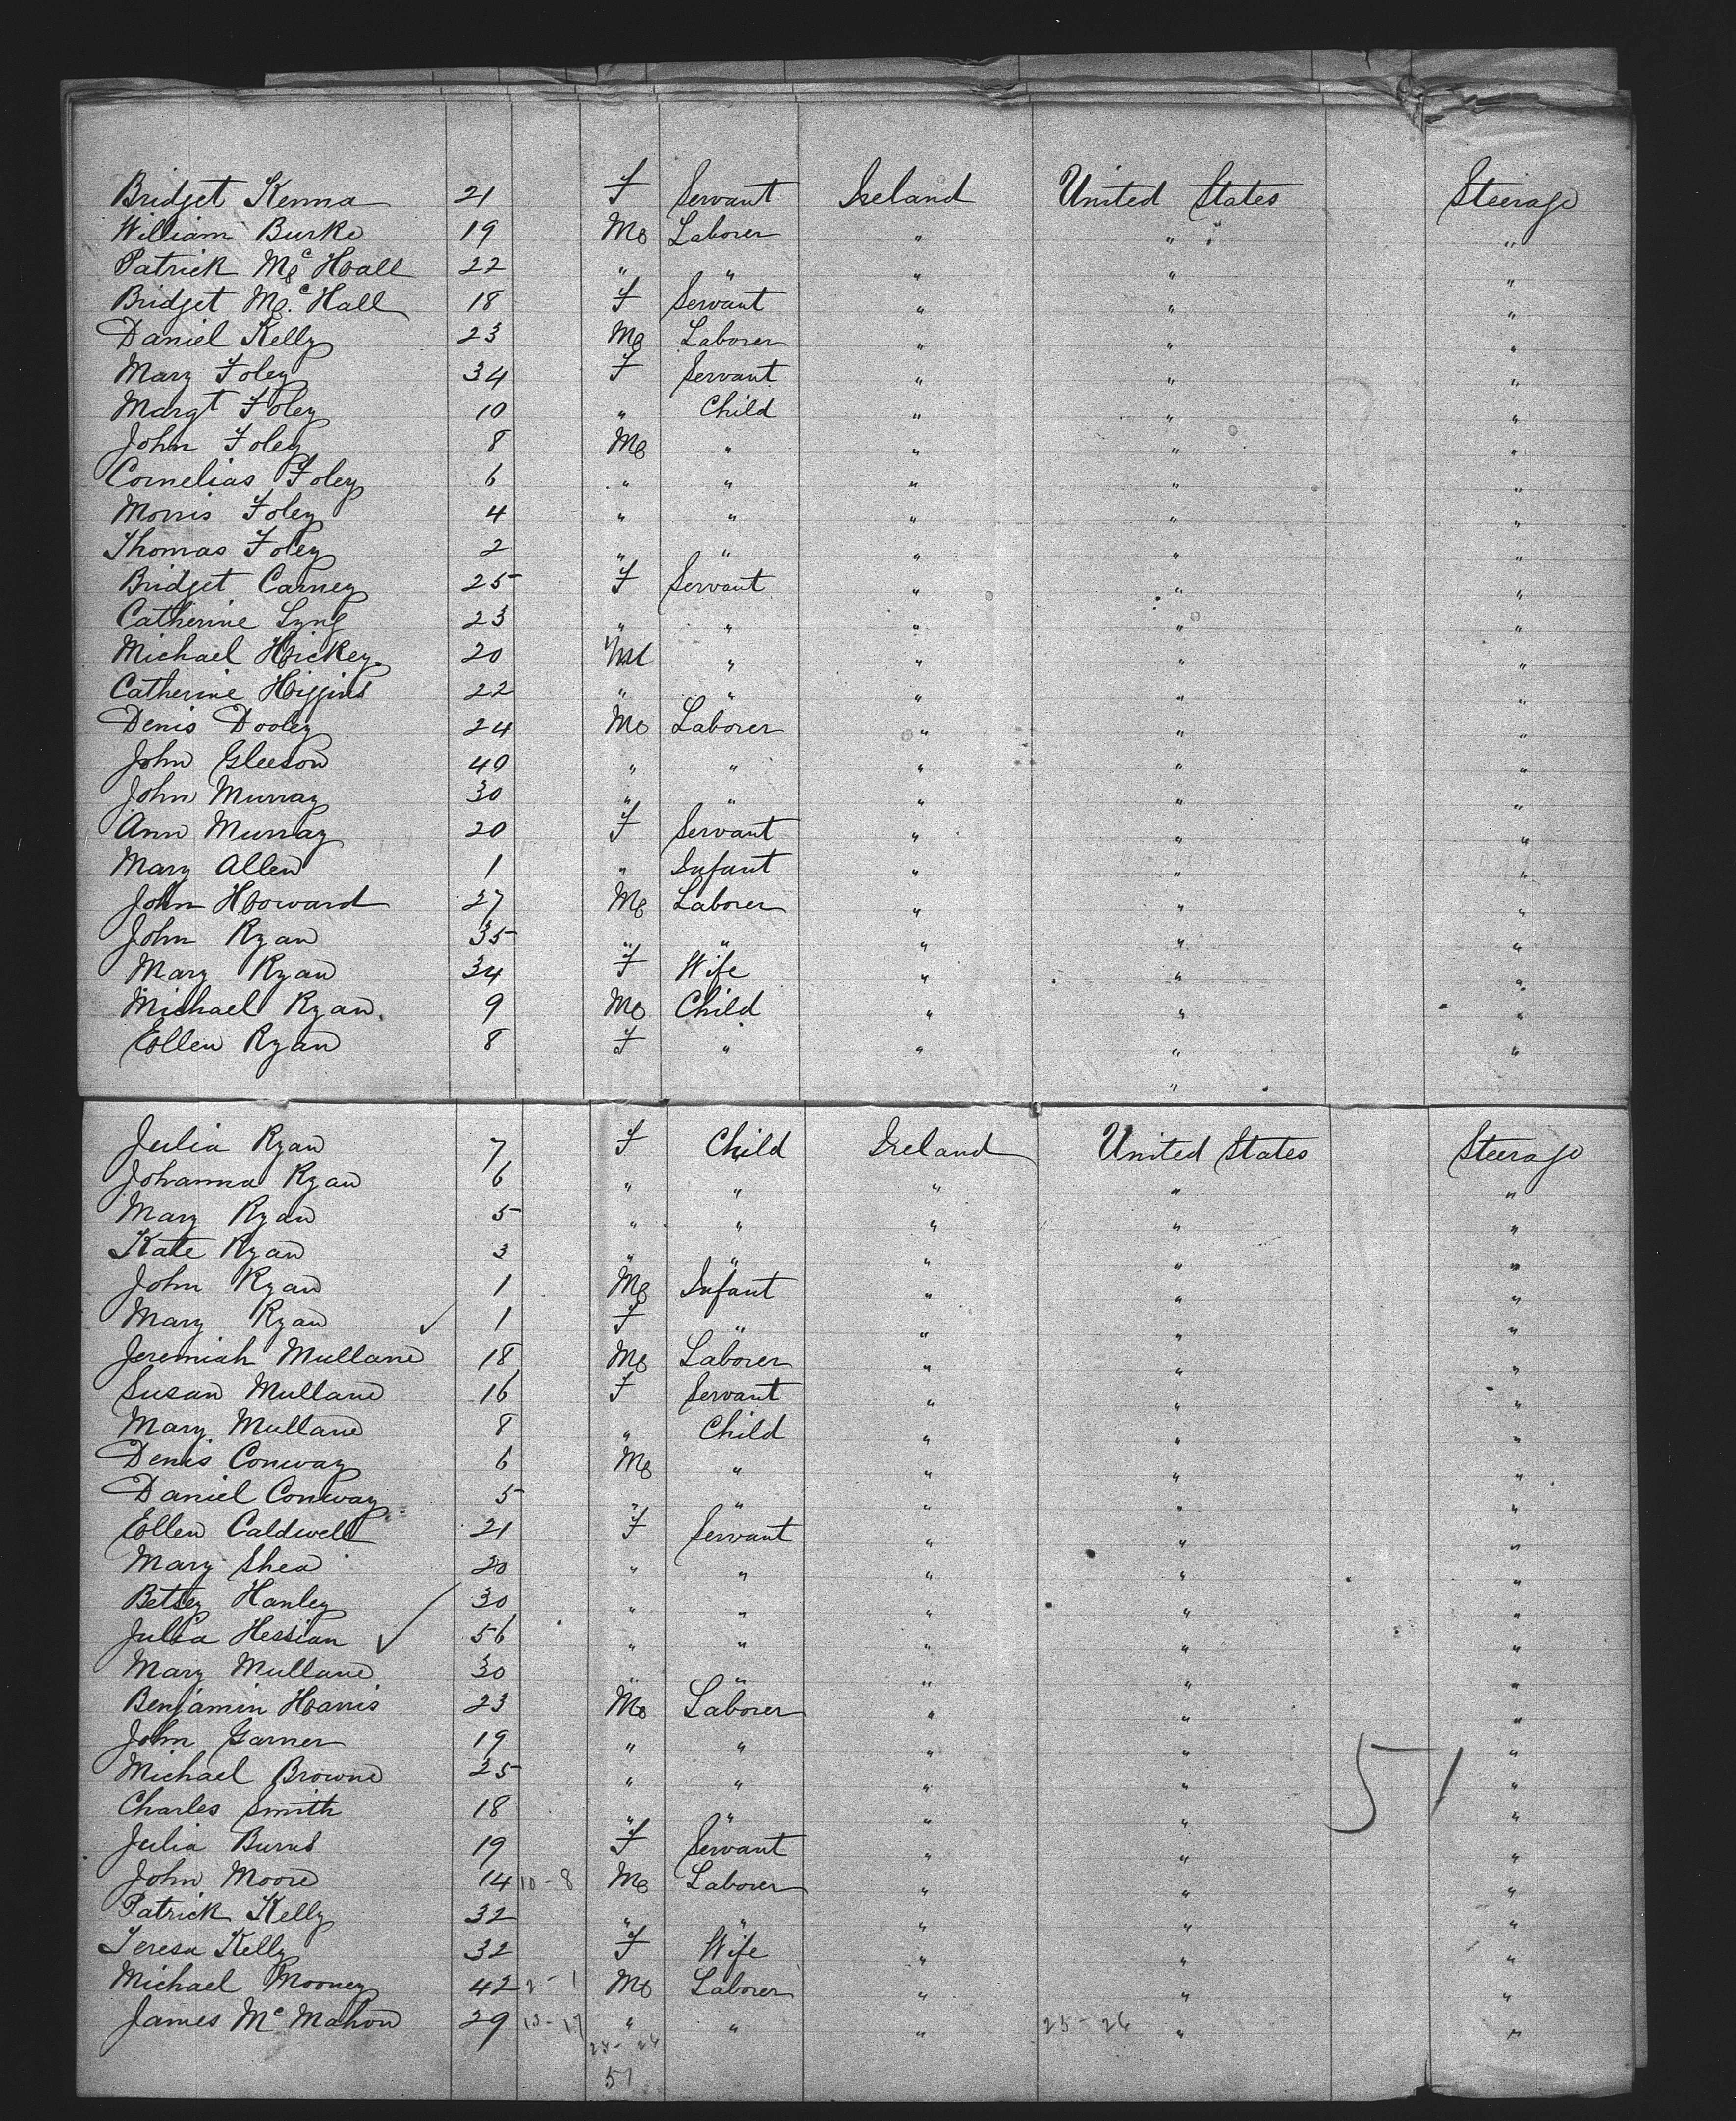 Bridget Kenna 21 F Servant Ireland United States Steerage
William Burke 19 M Laborer " " "
Patrick McHall 22 " " " " "
Bridget Mc.Hall 18 F Servant " " "
Daniel Kelly 23 M Laborer " " "
Mary Foley 34 F Servant " " "
Margt Foley 10 " Child " " "
John Foley 8 M " " " "
Cornelias Foley 6 " " " " "
Morris Foley 4 " " " " "
Thomas Foley 2 " " " " "
Bridget Carney 25 F Servant " " "
Catherine Lyng 23 " " " " "
Michael Hickey 20 " " " "
Catherine Higgins 22 " " " " "
Denis Dooley 24 M Laborer " " "
John Gleeson 40 " " " " "
John Murray 30 " " " " "
Ann Murray 20 F Servant " " "
Mary Allen 1 " Infant " " "
John Howard 27 M Laborer " " "
John Ryan 35 " " " " "
Mary Ryan 34 F Wife " " "
Michael Ryan 9 M Child " " "
Ellen Ryan 8 F " " " "
"
Julia Ryan 7 F Child Ireland United States Steerage
Johanna Ryan 6 " " " " "
Mary Ryan 5 " " " " "
Kate Ryan 3 " " " " "
John Ryan 1 M Infant " " "
Mary Ryan ✓ 1 F " " " "
Jeremiah Mullane 18 M Laborer " " "
Susan Mullane 16 F Servant " " "
Mary Mullane 8 " Child " " "
Denis Conway 6 M " " " "
Daniel Conway 5 " " " " "
Ellen Caldwell 21 F Servant " " "
Mary Shea 20 " " " " "
Betsey Hanley 30 " " " " "
Julia Hessian ✓ 56 " " " " "
Mary Mullane 30 " " " " "
Benjamin Harris 23 M Laborer " " "
John Garner 19 " " " " "
Michael Browne 25 " " " " 51 "
Charles Smith 18 " " " " "
Julia Burns 19 F Servant " " "
John Moore 14 10-8 M Laborer " " "
Patrick Kelly 32 " " " " "
Teresa Kelly 32 F Wife " " "
Michael Mooney 42 2-1 M Laborer " " "
James McMahon 29 13-17 " " " 25-26 " "
25-26
51